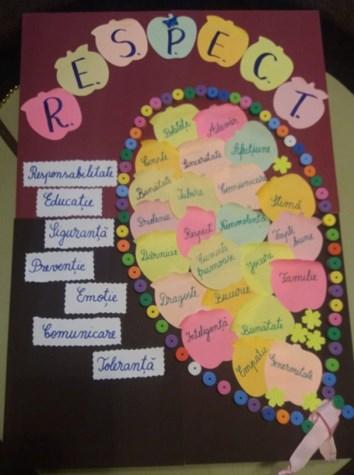 R.E.S.P.E.C.T.
Responsabilitate
Educație
Siguranță
Prevenție
Emoție
Comunicare
Toleranță
Adevăr
Cinste
Sinceritate
Afecțiune
Bunătate
Iubire
Comunicare
Stimă
Prietenie
Respect
Nonviolență
Fapte bune
Dărnicie
Cuvinte frumoase
Familie
Dragoste
Bucurie
Inteligență
Bunătate
Empatie
Generozitate